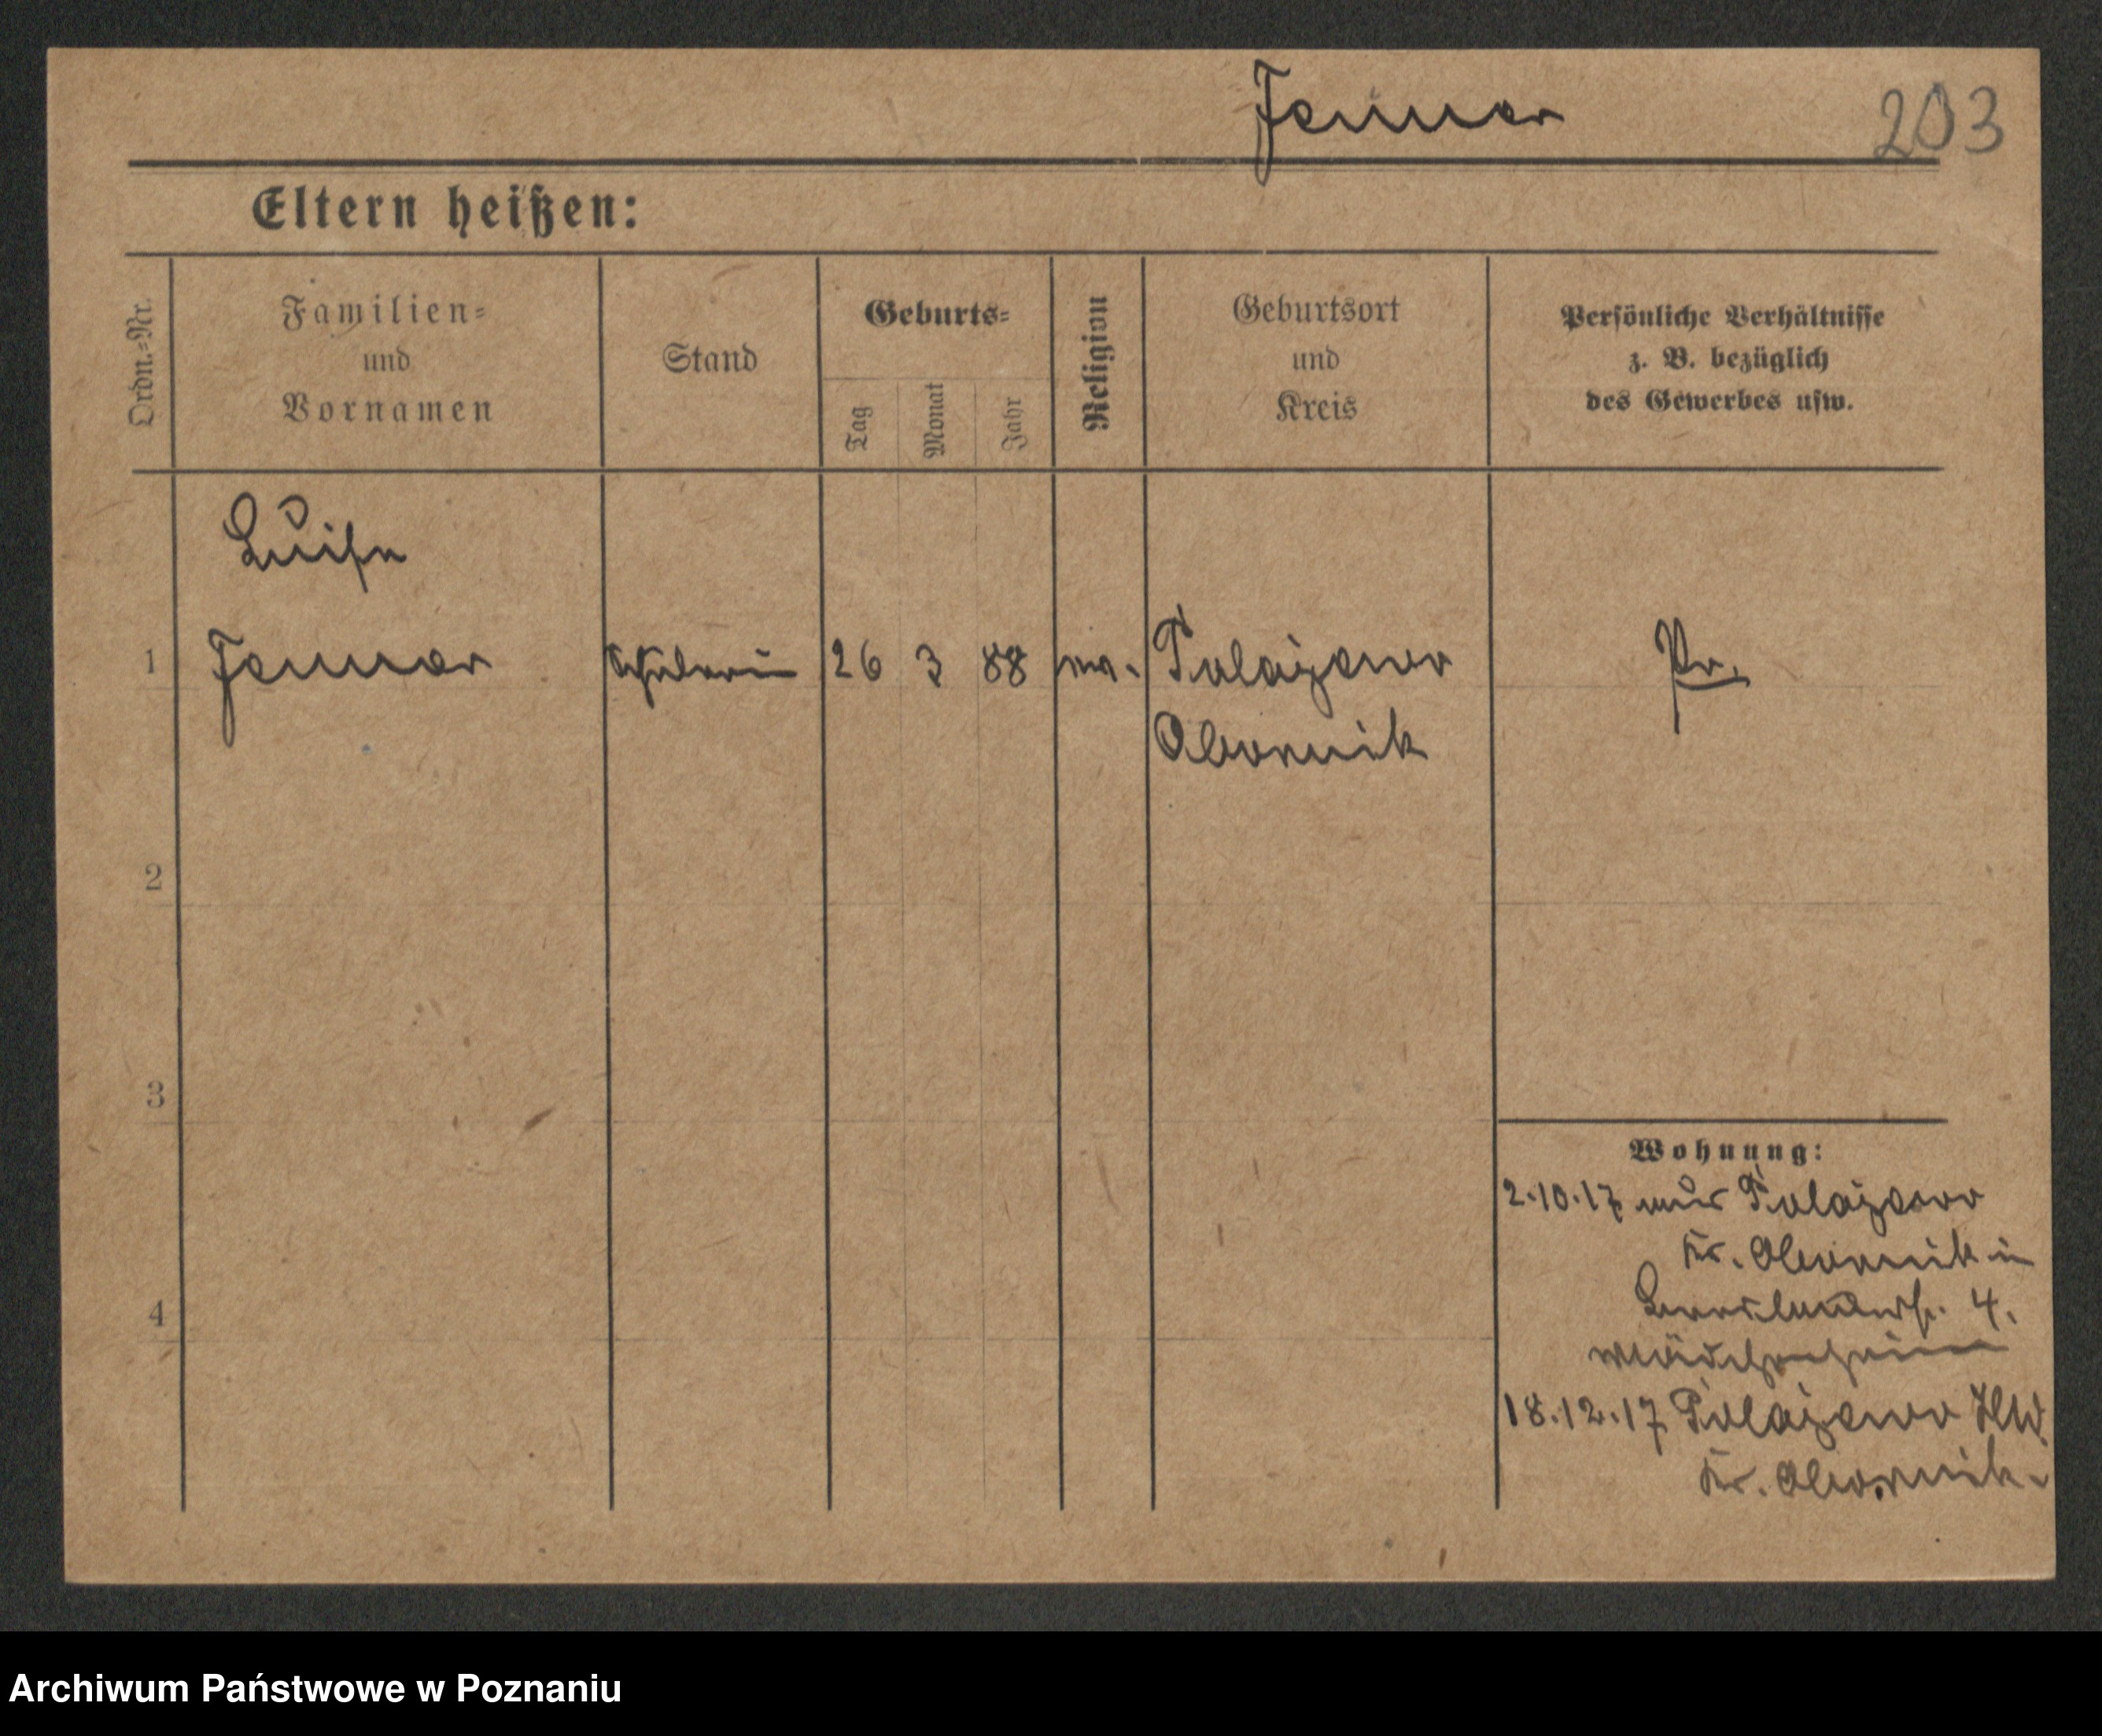 Jenner
203
Eltern heißen:
Ordn.-Nr.
Familien-
und
Vornamen
Stand
Geburts-
Tag
Monat
Jahr
Religion
Geburtsort
und
Kreis
Persönliche Verhältnisse
z. B. bezüglich
des Gewerbes usw.
Luise
1 Schülerin 26 3 88 Polajewo Pr.
Obornik
2
3
4
Wohnung:
2.10.17 aus Polajewo
Kr. Obornik in
4.
Mädchenheim
18.12.17 Polajewo
Kr. Obornik.
Archiwum Państwowe w Poznaniu